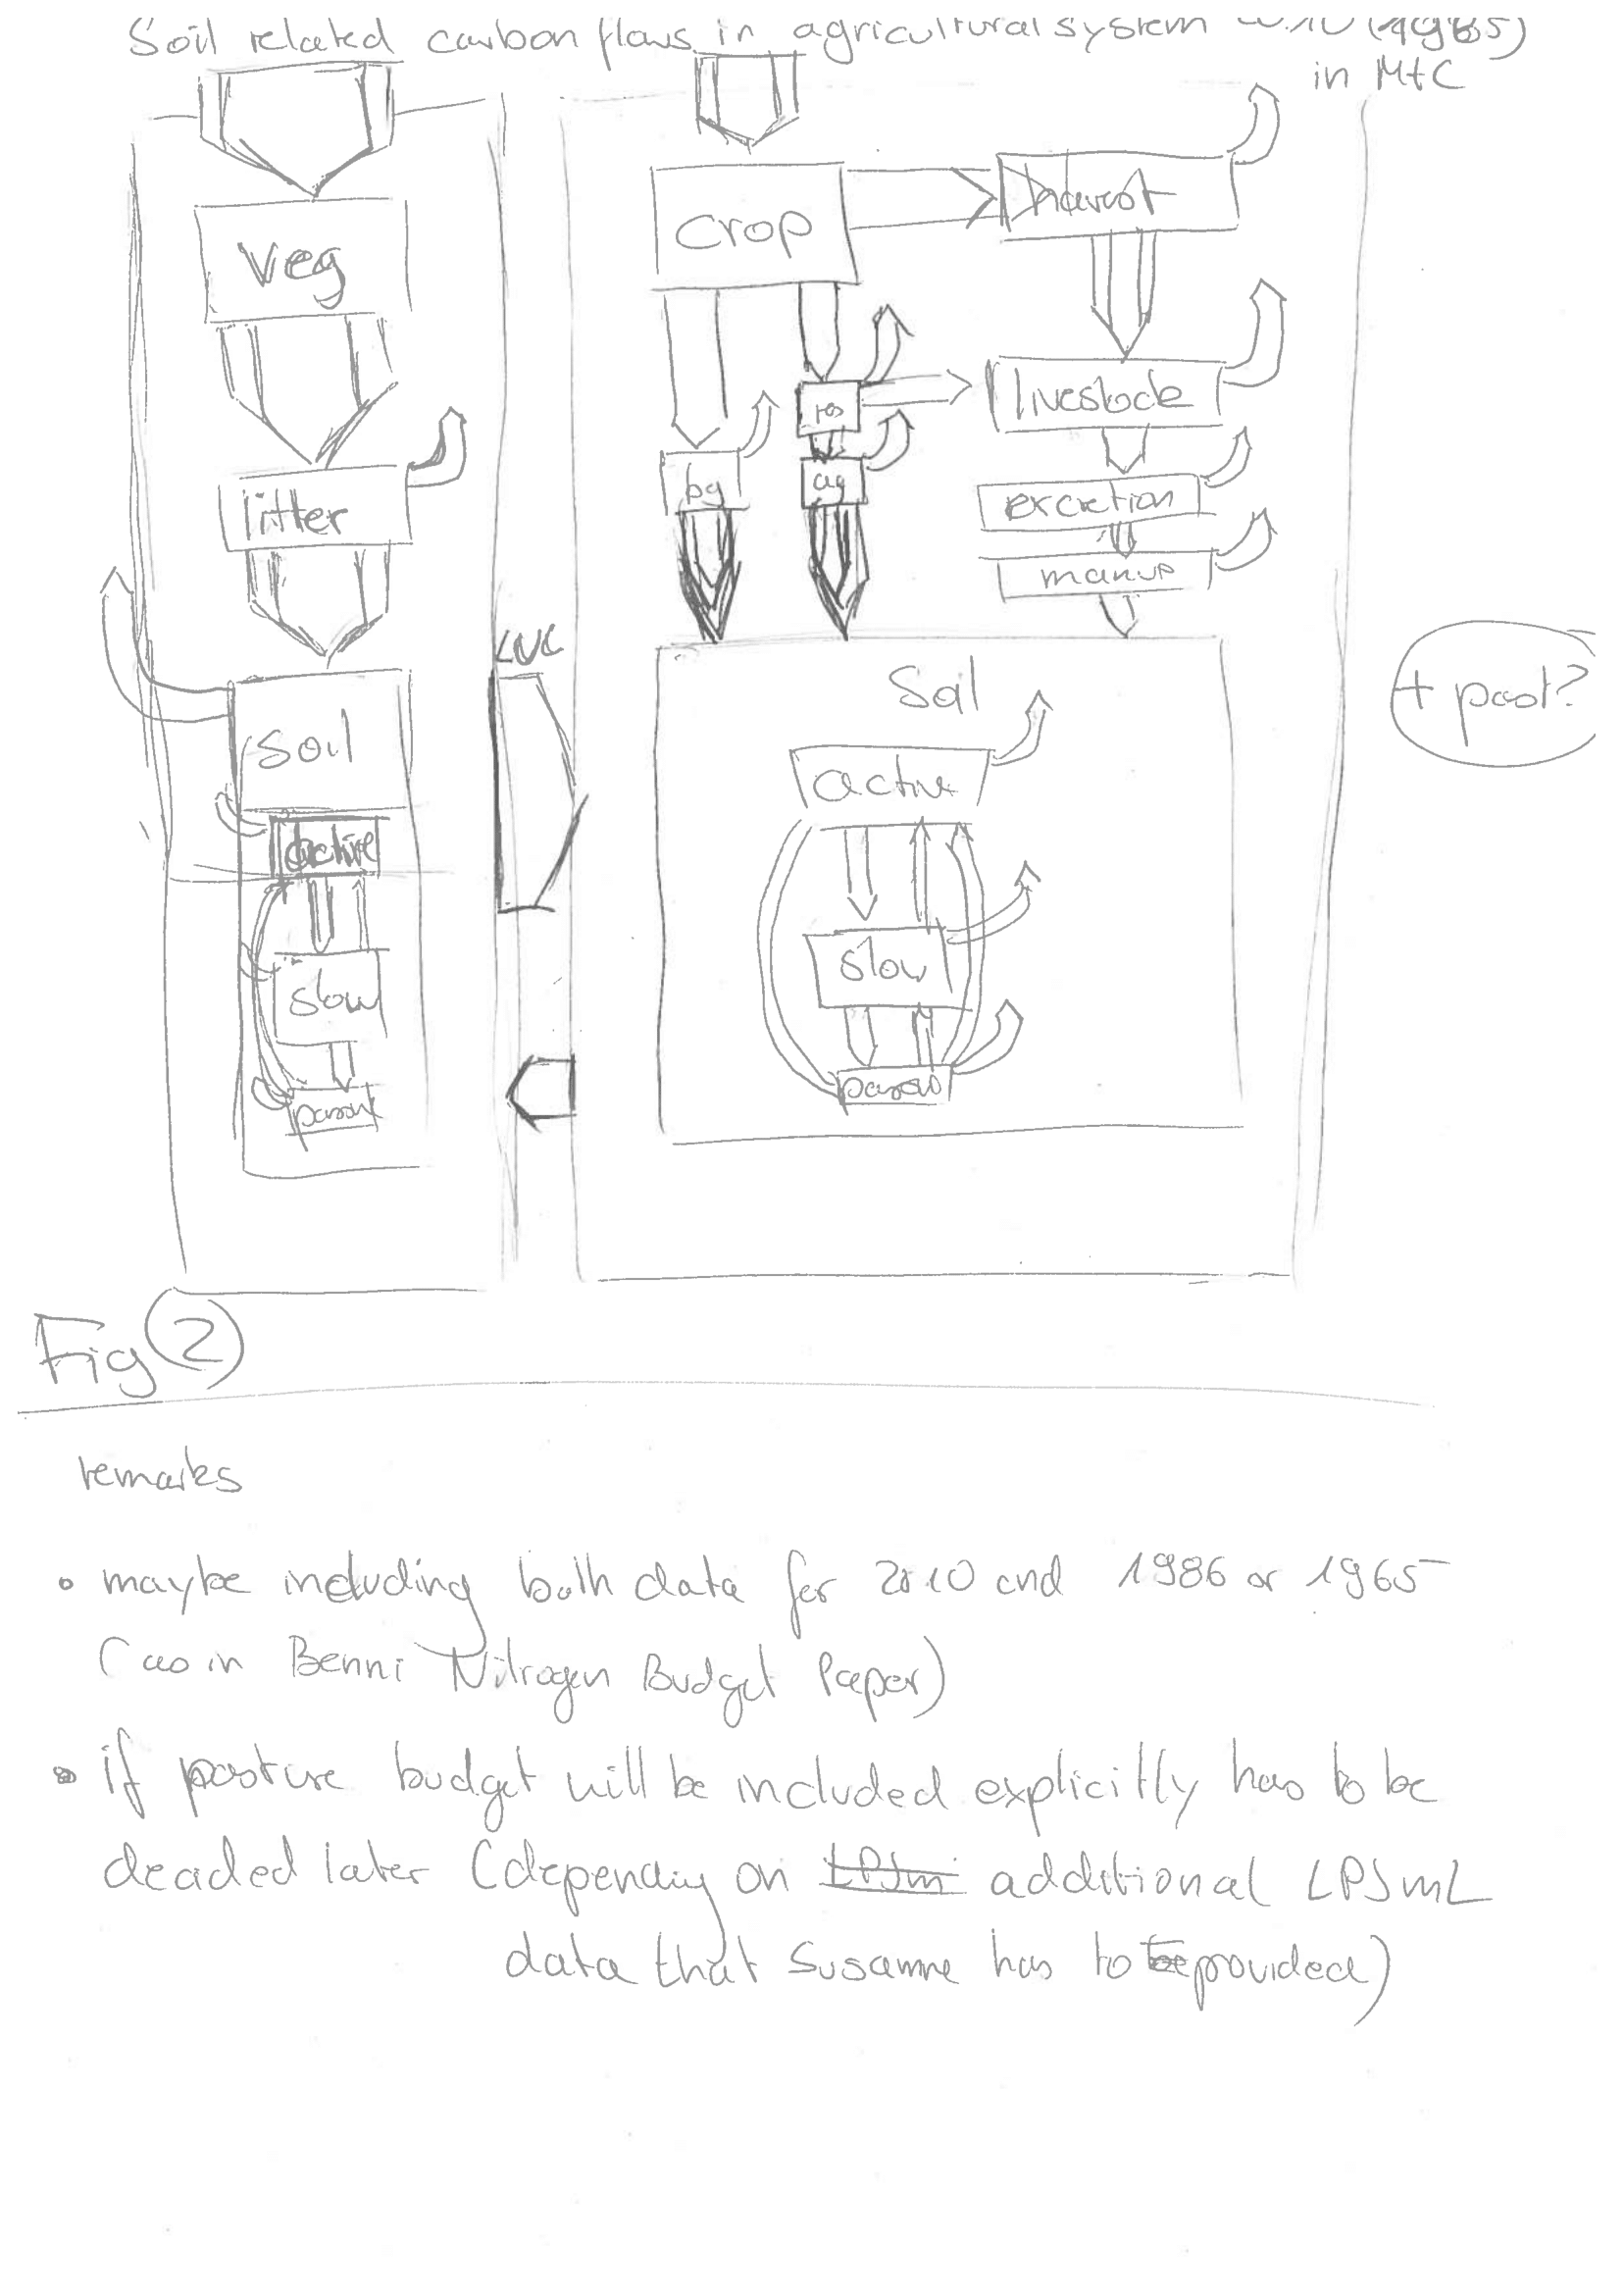 Soil related carbon flows in agricultural system 2010 (1965)
in MtC
Veg
litter
soil
active
slow
passiv
LUC
crop
harvest
res
livestock
bg
ag
excretion
manure
Soil
active
slow
passiv
+ past?
Fig 2
remarks
• maybe including both data for 2010 and 1986 or 1965
(as in Benni Nitrogen Budget Paper)
• if pasture budget will be included explicitly has to be
decided later (depending on LPJm additional LPJmL
data that Susanne has to be provided)